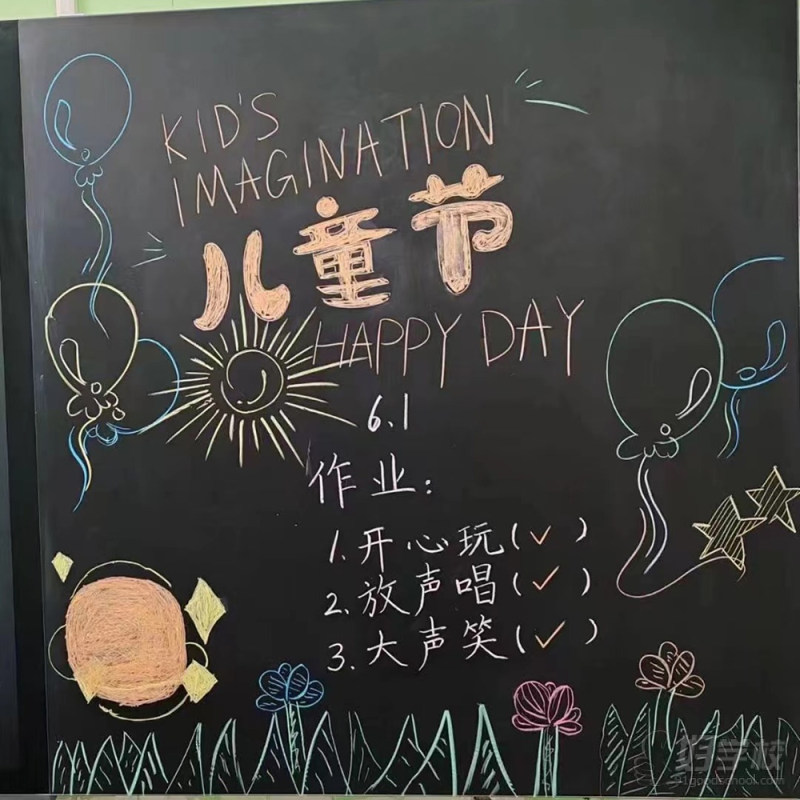 KID'S
IMAGINATION
儿童节
HAPPY DAY
6.1
作业:
1.开心玩(✓)
2.放声唱(✓)
3.大声笑(✓)
91goodschool.com